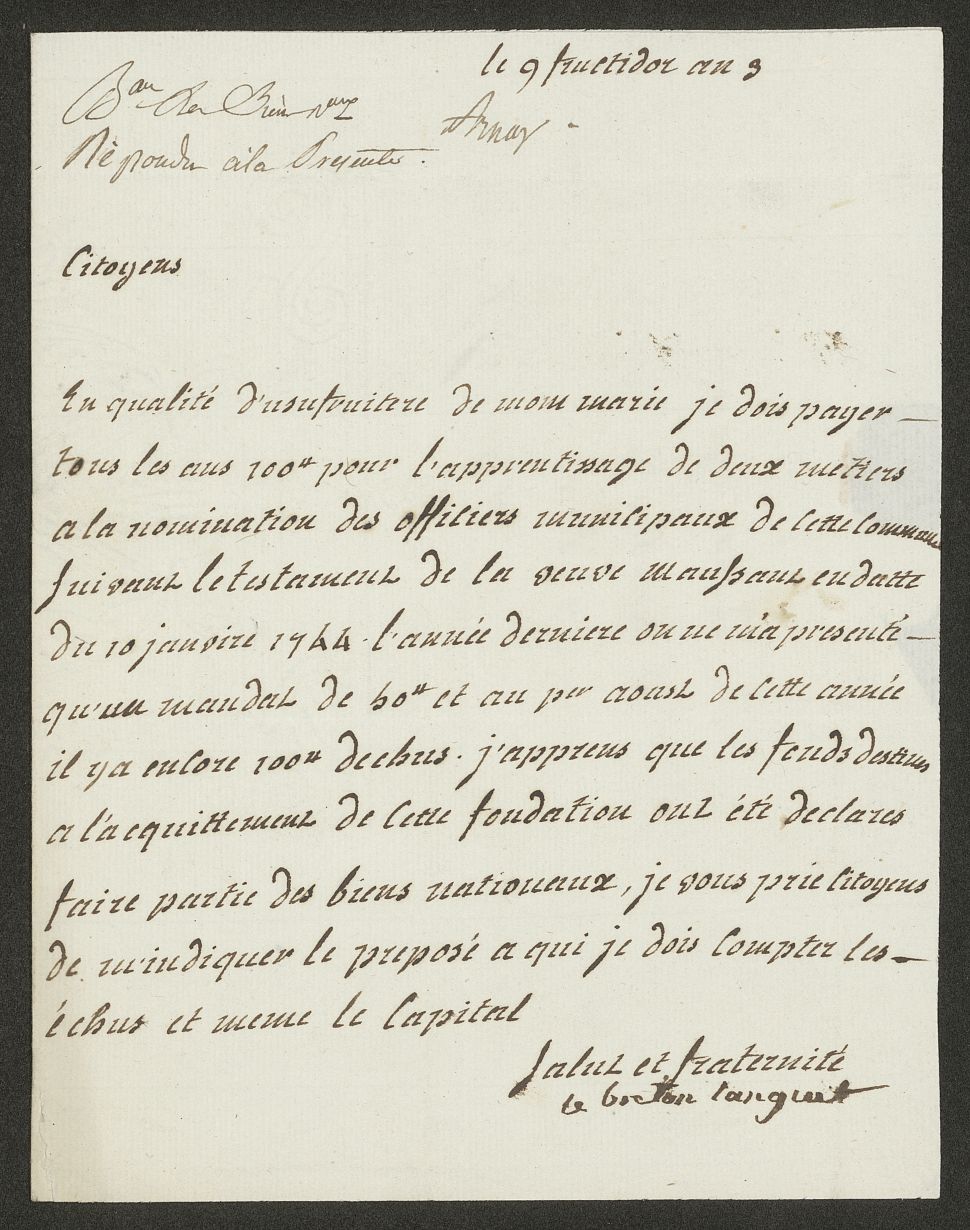 le 9 fructidor an 3
B.au des Biens N.aux
Arnay
Repondu a la Presente.
Citoyens
En qualité d'usufruitere de mom marie je dois payer
tous les ans 100tt pour l'apprentissage de deux metiers
a la nomination des officiers municipaux de cette commune
suivant le testament de la veuve Maussant en datte
du 10 janvire 1744. l'année derniere on ne m'a presenté
qu'un mandat de 50tt et au per aoust de cette année
il y a encore 100tt dechus. j'apprens que les fonds destines
a l'acquittement de cette fondation ont été declares
faire partie des biens nationaux, je vous prie Citoyens
de m'indiquer le preposé a qui je dois compter les
échus et meme le Capital
salut et fraternité
le breton languet